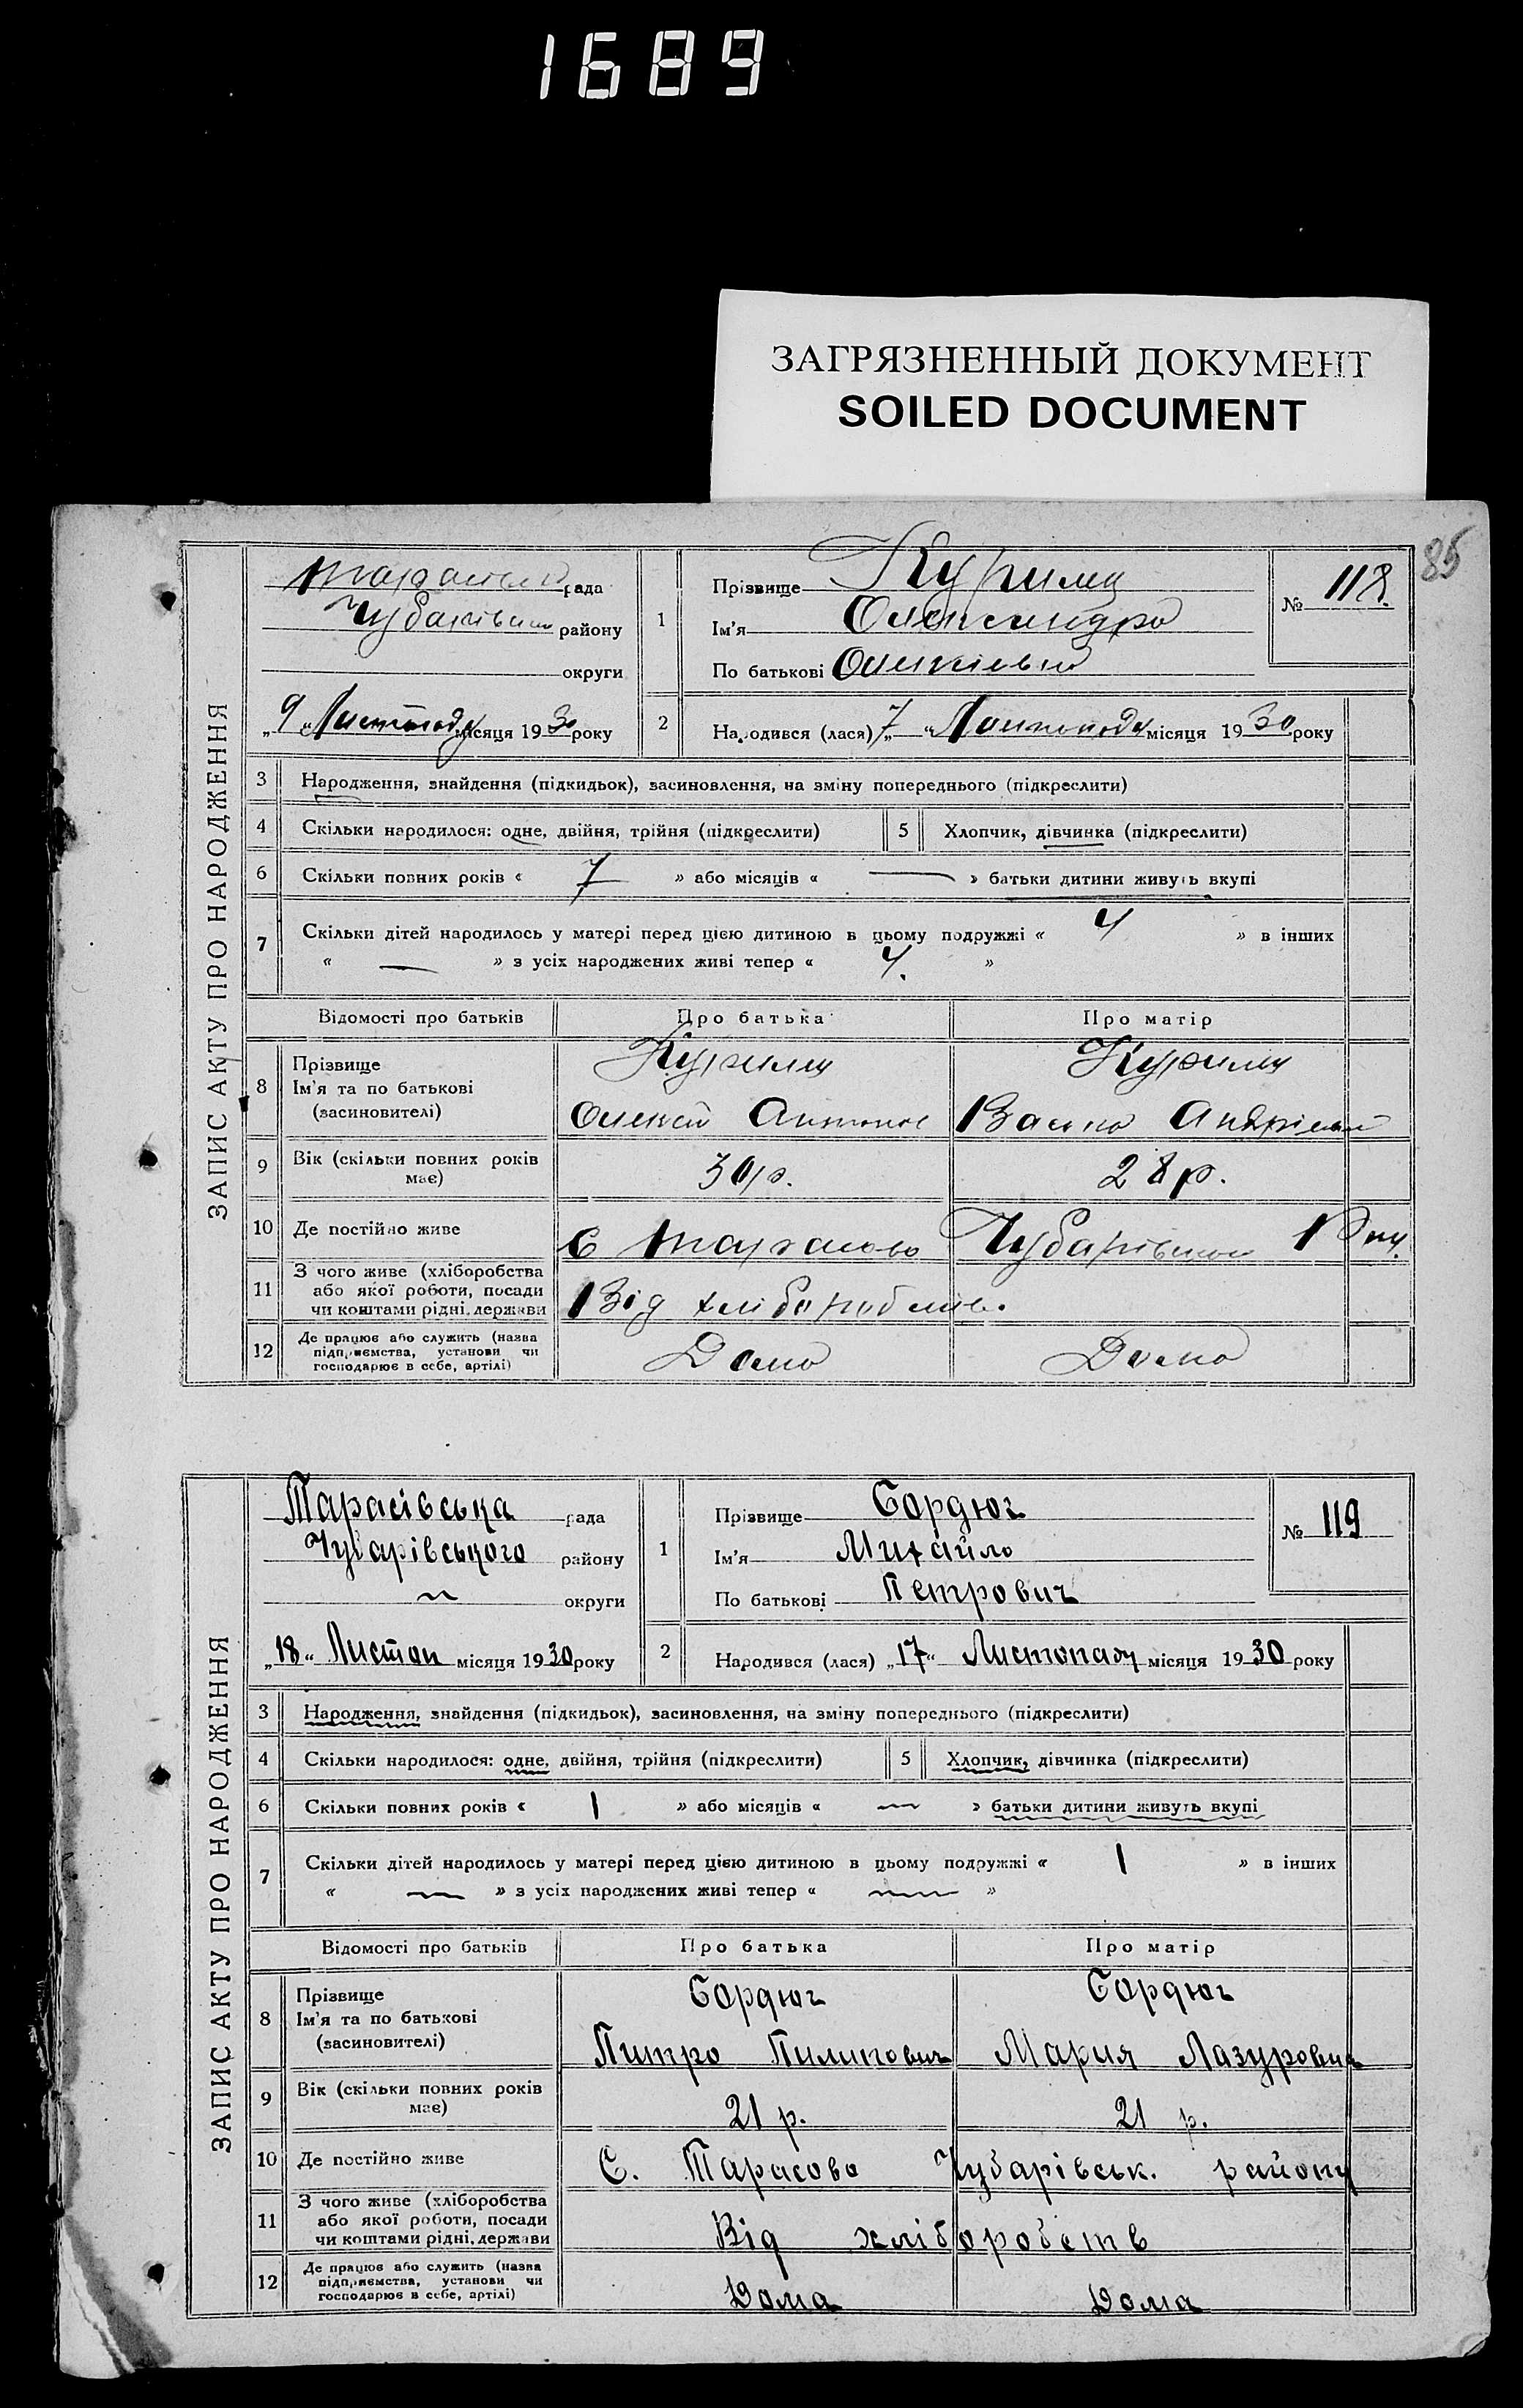 1689
ЗАГРЯЗНЕННЫЙ ДОКУМЕНТ
SOILED DOCUMENT
85
ЗАПИС АКТУ ПРО НАРОДЖЕННЯ
рада
району
округи
„9“ Листопаду місяця 1930 року
1
Прізвище Курило
Ім'я Олександра
По батькові
№ 118.
2 Народився (лася) „7“ Листопаду місяця 1930 року
3 Народження, знайдення (підкидьок), засиновлення, на зміну попереднього (підкреслити)
4 Скільки народилося: одне, двійня, трійня (підкреслити) 5 Хлопчик, дівчинка (підкреслити)
6 Скільки повних років « 7 » або місяців « — » батьки дитини живуть вкупі
7 Скільки дітей народилось у матері перед цією дитиною в цьому подружжі « 4 » в інших
« — » з усіх народжених живі тепер « 4. »
Відомості про батьків Про батька Про матір
8 Прізвище
Ім'я та по батькові
(засиновителі)
Курило Курило
Олексій Антонов
9 Вік (скільки повних років має) 30 р. 28 р.
10 Де постійно живе С Тарасово
11 З чого живе (хліборобства
або якої роботи, посади
чи коштами рідні, держави
Від
12 Де працює або служить (назва
підприємства, установи чи
господарює в себе, артілі)
Дома Дома
ЗАПИС АКТУ ПРО НАРОДЖЕННЯ
Тарасівська рада
Чубарівського району
округи
„18“ Листоп місяця 1930 року
1
Прізвище Сордюг
Ім'я Михайло
По батькові Петрович
№ 119
2 Народився (лася) „17“ Листопаду місяця 1930 року
3 Народження, знайдення (підкидьок), засиновлення, на зміну попереднього (підкреслити)
4 Скільки народилося: одне, двійня, трійня (підкреслити) 5 Хлопчик, дівчинка (підкреслити)
6 Скільки повних років « 1 » або місяців « — » батьки дитини живуть вкупі
7 Скільки дітей народилось у матері перед цією дитиною в цьому подружжі « 1 » в інших
« — » з усіх народжених живі тепер « — »
Відомості про батьків Про батька Про матір
8 Прізвище
Ім'я та по батькові
(засиновителі)
Сордюг Сордюг
Питро Пилипович Мария Лазуровна
9 Вік (скільки повних років має) 21 р. 21 р.
10 Де постійно живе С. Тарасово Чубарівськ. району
11 З чого живе (хліборобства
або якої роботи, посади
чи коштами рідні, держави
Від хліборобств
12 Де працює або служить (назва
підприємства, установи чи
господарює в себе, артілі)
Дома Дома